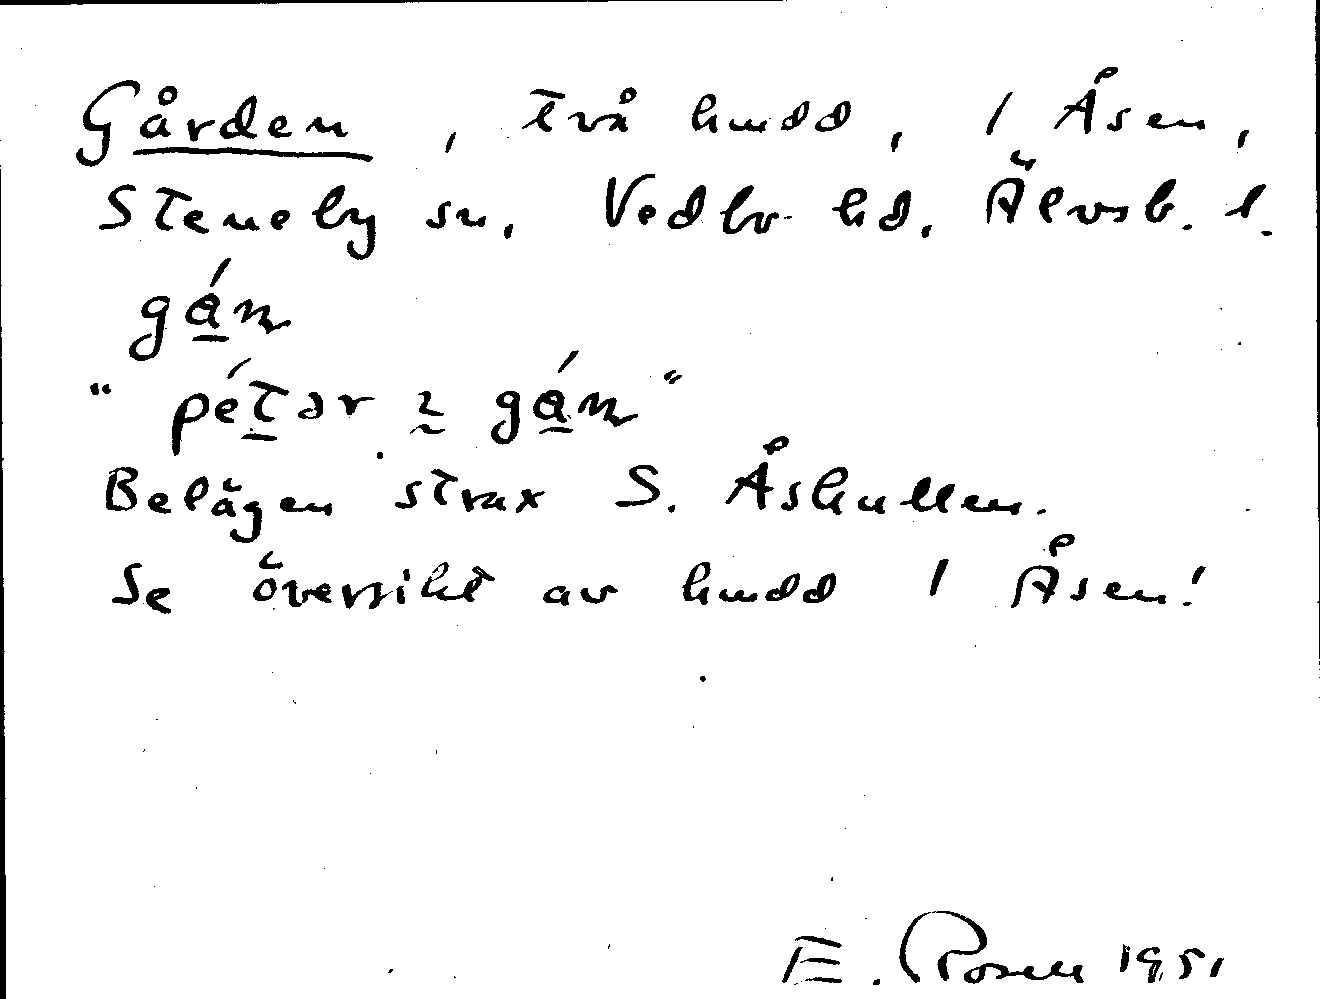 Gården, två hmdd, i Åsen,
Steneby sn. Vedbo hd. Älvsb. l.
gán
"pétər i gán"
Belägen strax S. Åskullen.
Se översikt av hmdd i Åsen!
E. Rosell 1951